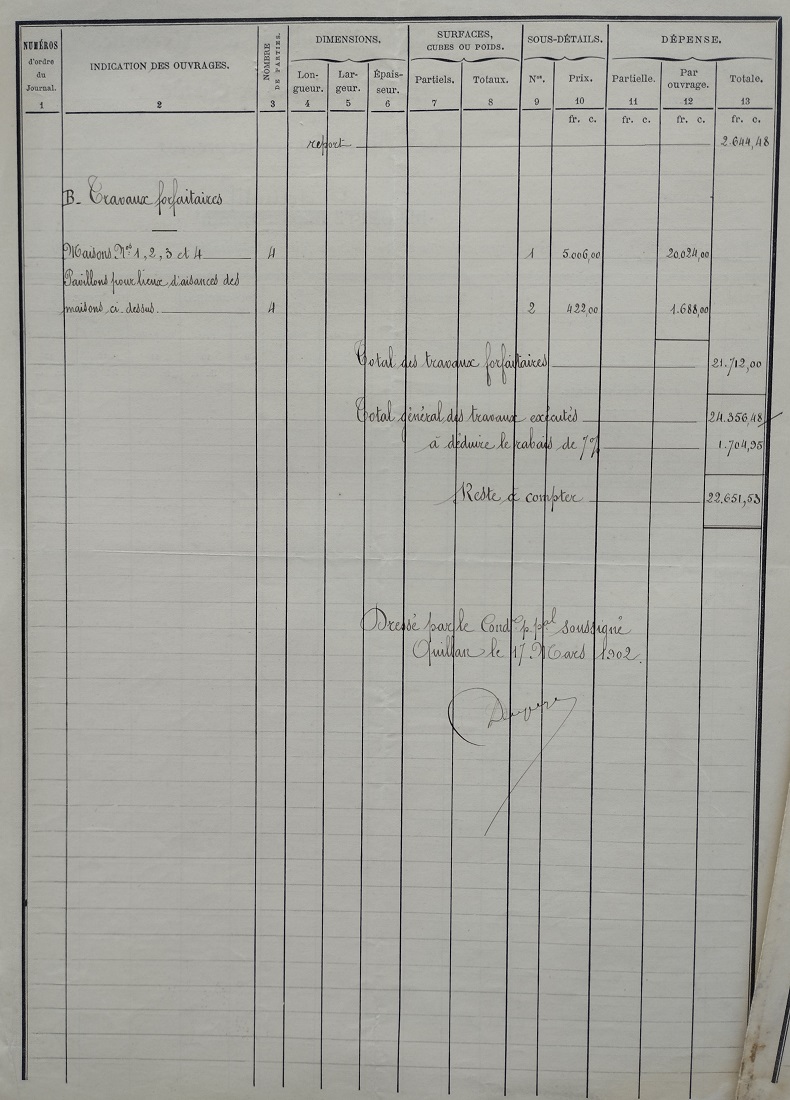 NUMÉROS d'ordre du Journal. 1
INDICATION DES OUVRAGES. 2
NOMBRE DE PARTIES. 3
DIMENSIONS.
Lon-gueur. 4
Lar-geur. 5
Épais-seur. 6
SURFACES, CUBES OU POIDS.
Partiels. 7
Totaux. 8
SOUS-DÉTAILS.
Nos. 9
Prix. 10
DÉPENSE.
Partielle. 11
Par ouvrage. 12
Totale. 13
fr. c. fr. c. fr. c. fr. c.
report 2.644,48
B- Travaux forfaitaires
Maisons Nos 1, 2, 3 et 4 4 1 5.006,00 20.024,00
Pavillons pour lieux d'aisances des
maisons ci-dessus. 4 2 422,00 1.688,00
Total des travaux forfaitaires 21.712,00
Total général des travaux exécutés 24.356,48
à déduire le rabais de 7% 1.704,95
Reste à compter 22.651,53
Dressé par le Condr ppal soussigné
Quillan le 17 Mars 1902.